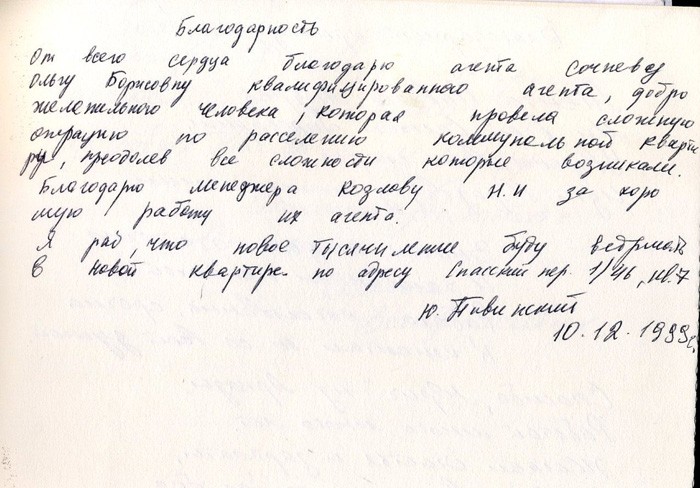 Благодарность
От всего сердца благодарю агента Сочневу
Ольгу Борисовну квалифицированного агента, добро
желательного человека, которая провела сложную
операцию по расселению коммунальной кварти
ры, преодолев все сложности которые возникали.
Благодарю менеджера Козлову Н.И за хоро
шую работу их агента.
Я рад, что новое тысячиление буду встречать
в новой квартире по адресу Спасский пер. 1/46, кв.7
Ю. Пивинский
10.12.1999г.